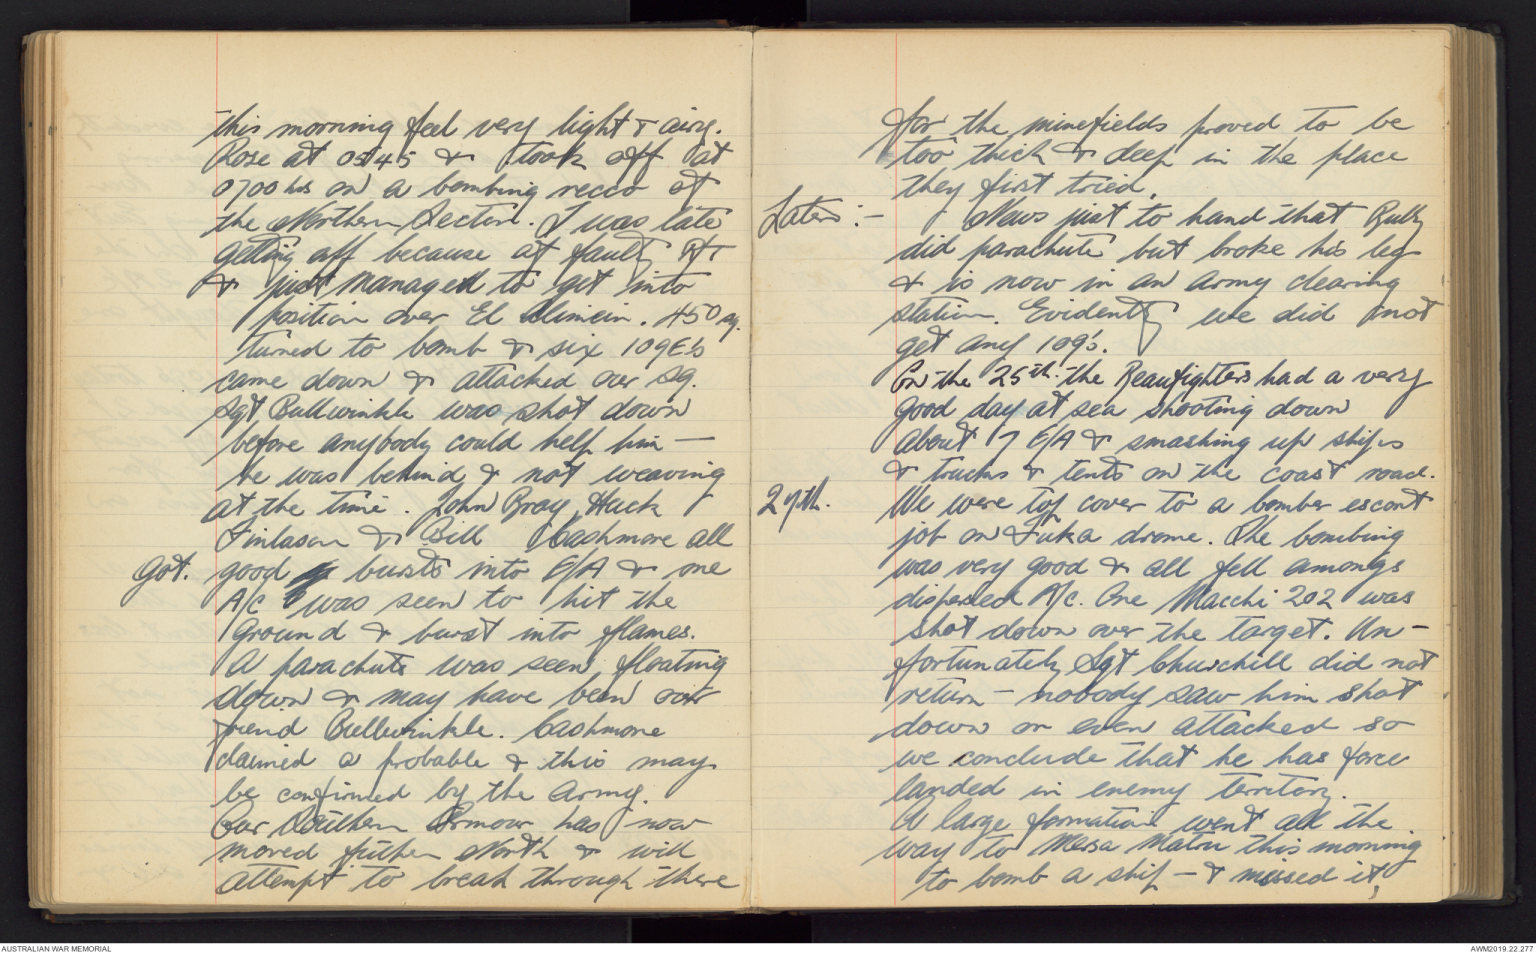 this morning feel very light & airy.
Rose at 0545 & took off at
0700 hrs on a bombing recco of
the Northern Sector. I was late
getting off because of faulty R/T
& just managed to get into
position over El Alimein. 450 sq.
turned to bomb & six 109E's
came down & attacked our sq.
Sgt Bullwinkle was shot down
before anybody could help him —
he was behind & not weaving
at the time. John Bray, Huck
Finlason & Bill Cashmore all
got. good bursts into E/A & one
A/C was seen to hit the
ground & burst into flames.
A parachute was seen floating
down & may have been our
friend Bullwinkle. Cashmore
claimed a probable & this may
be confirmed by the Army.
Our Southern Armour has now
moved futher North & will
attempt to break through there
for the minefields proved to be
too thick & deep in the place
they first tried.
Later:- News just to hand that Bully
did parachute but broke his leg
& is now in an army clearing
station. Evidently we did not
get any 109's.
On the 25th. the Beaufighters had a very
good day at sea shooting down
about 7 E/A & smashing up ships
& trucks & tents on the coast road.
27th. We were top cover to a bomber escort
job on Fuka drome. The bombing
was very good & all fell amongs
dispersed A/c. One Macchi 202 was
shot down over the target. Un-
fortunately Sgt Churchill did not
return - nobody saw him shot
down or even attacked so
we conclude that he has force
landed in enemy territory.
A large formation went all the
way to Mersa Matru this morning
to bomb a ship - & missed it,
AUSTRALIAN WAR MEMORIAL
AWM2019.22.277